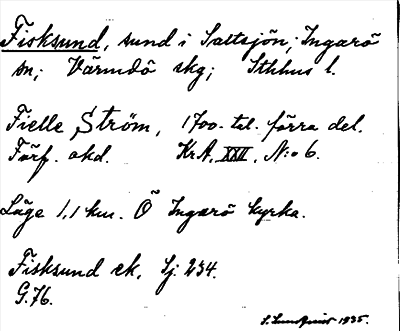 Fisksund, sund i Saltsjön; Ingarö
sn; Värmdö skg; Sthlms l.
Fielle Ström, 1700-tal. förra del.
Förf. okd. KrA, XXII, N:o 6.
Läge 1,1 km. Ö Ingarö kyrka.
Fisksund ek, Sj. 234.
G.76.
S. Lundqvist 1935.